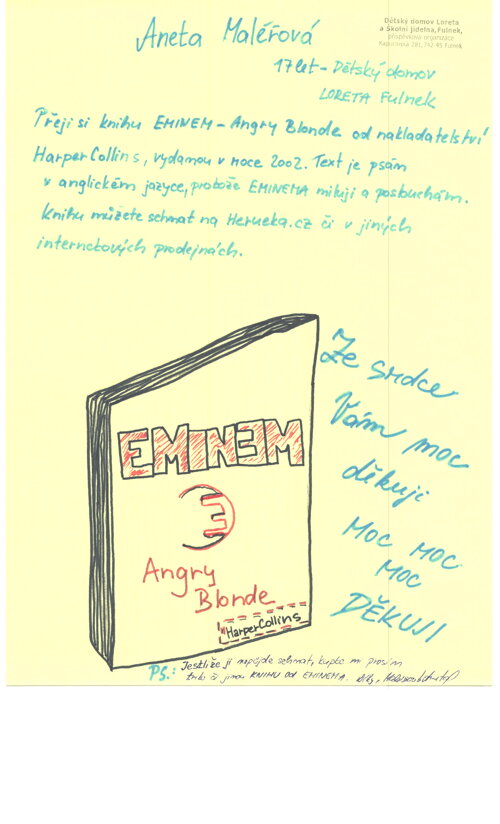 Aneta Maléřová
Dětský domov Loreta
a Školní jídelna, Fulnek,
příspěvková organizace
Kapucínská 281, 742 45 Fulnek
17 let - Dětský domov
LORETA Fulnek
Přeji si knihu EMINEM - Angry Blonde od nakladatelství
HarperCollins, vydanou v roce 2002. Text je psám
v anglickém jazyce, protože EMINEMA miluji a poslouchám.
Knihu můžete sehnat na Heureka.cz či v jiných
internetových prodejnách.
Ze srdce
Vám moc
děkuji
MOC MOC
MOC
DĚKUJI
EMINEM
Angry
Blonde
HarperCollins
PS.: Jestliže ji nepůjde sehnat, kupte mi prosím
či jinou KNIHU od EMINEMA.